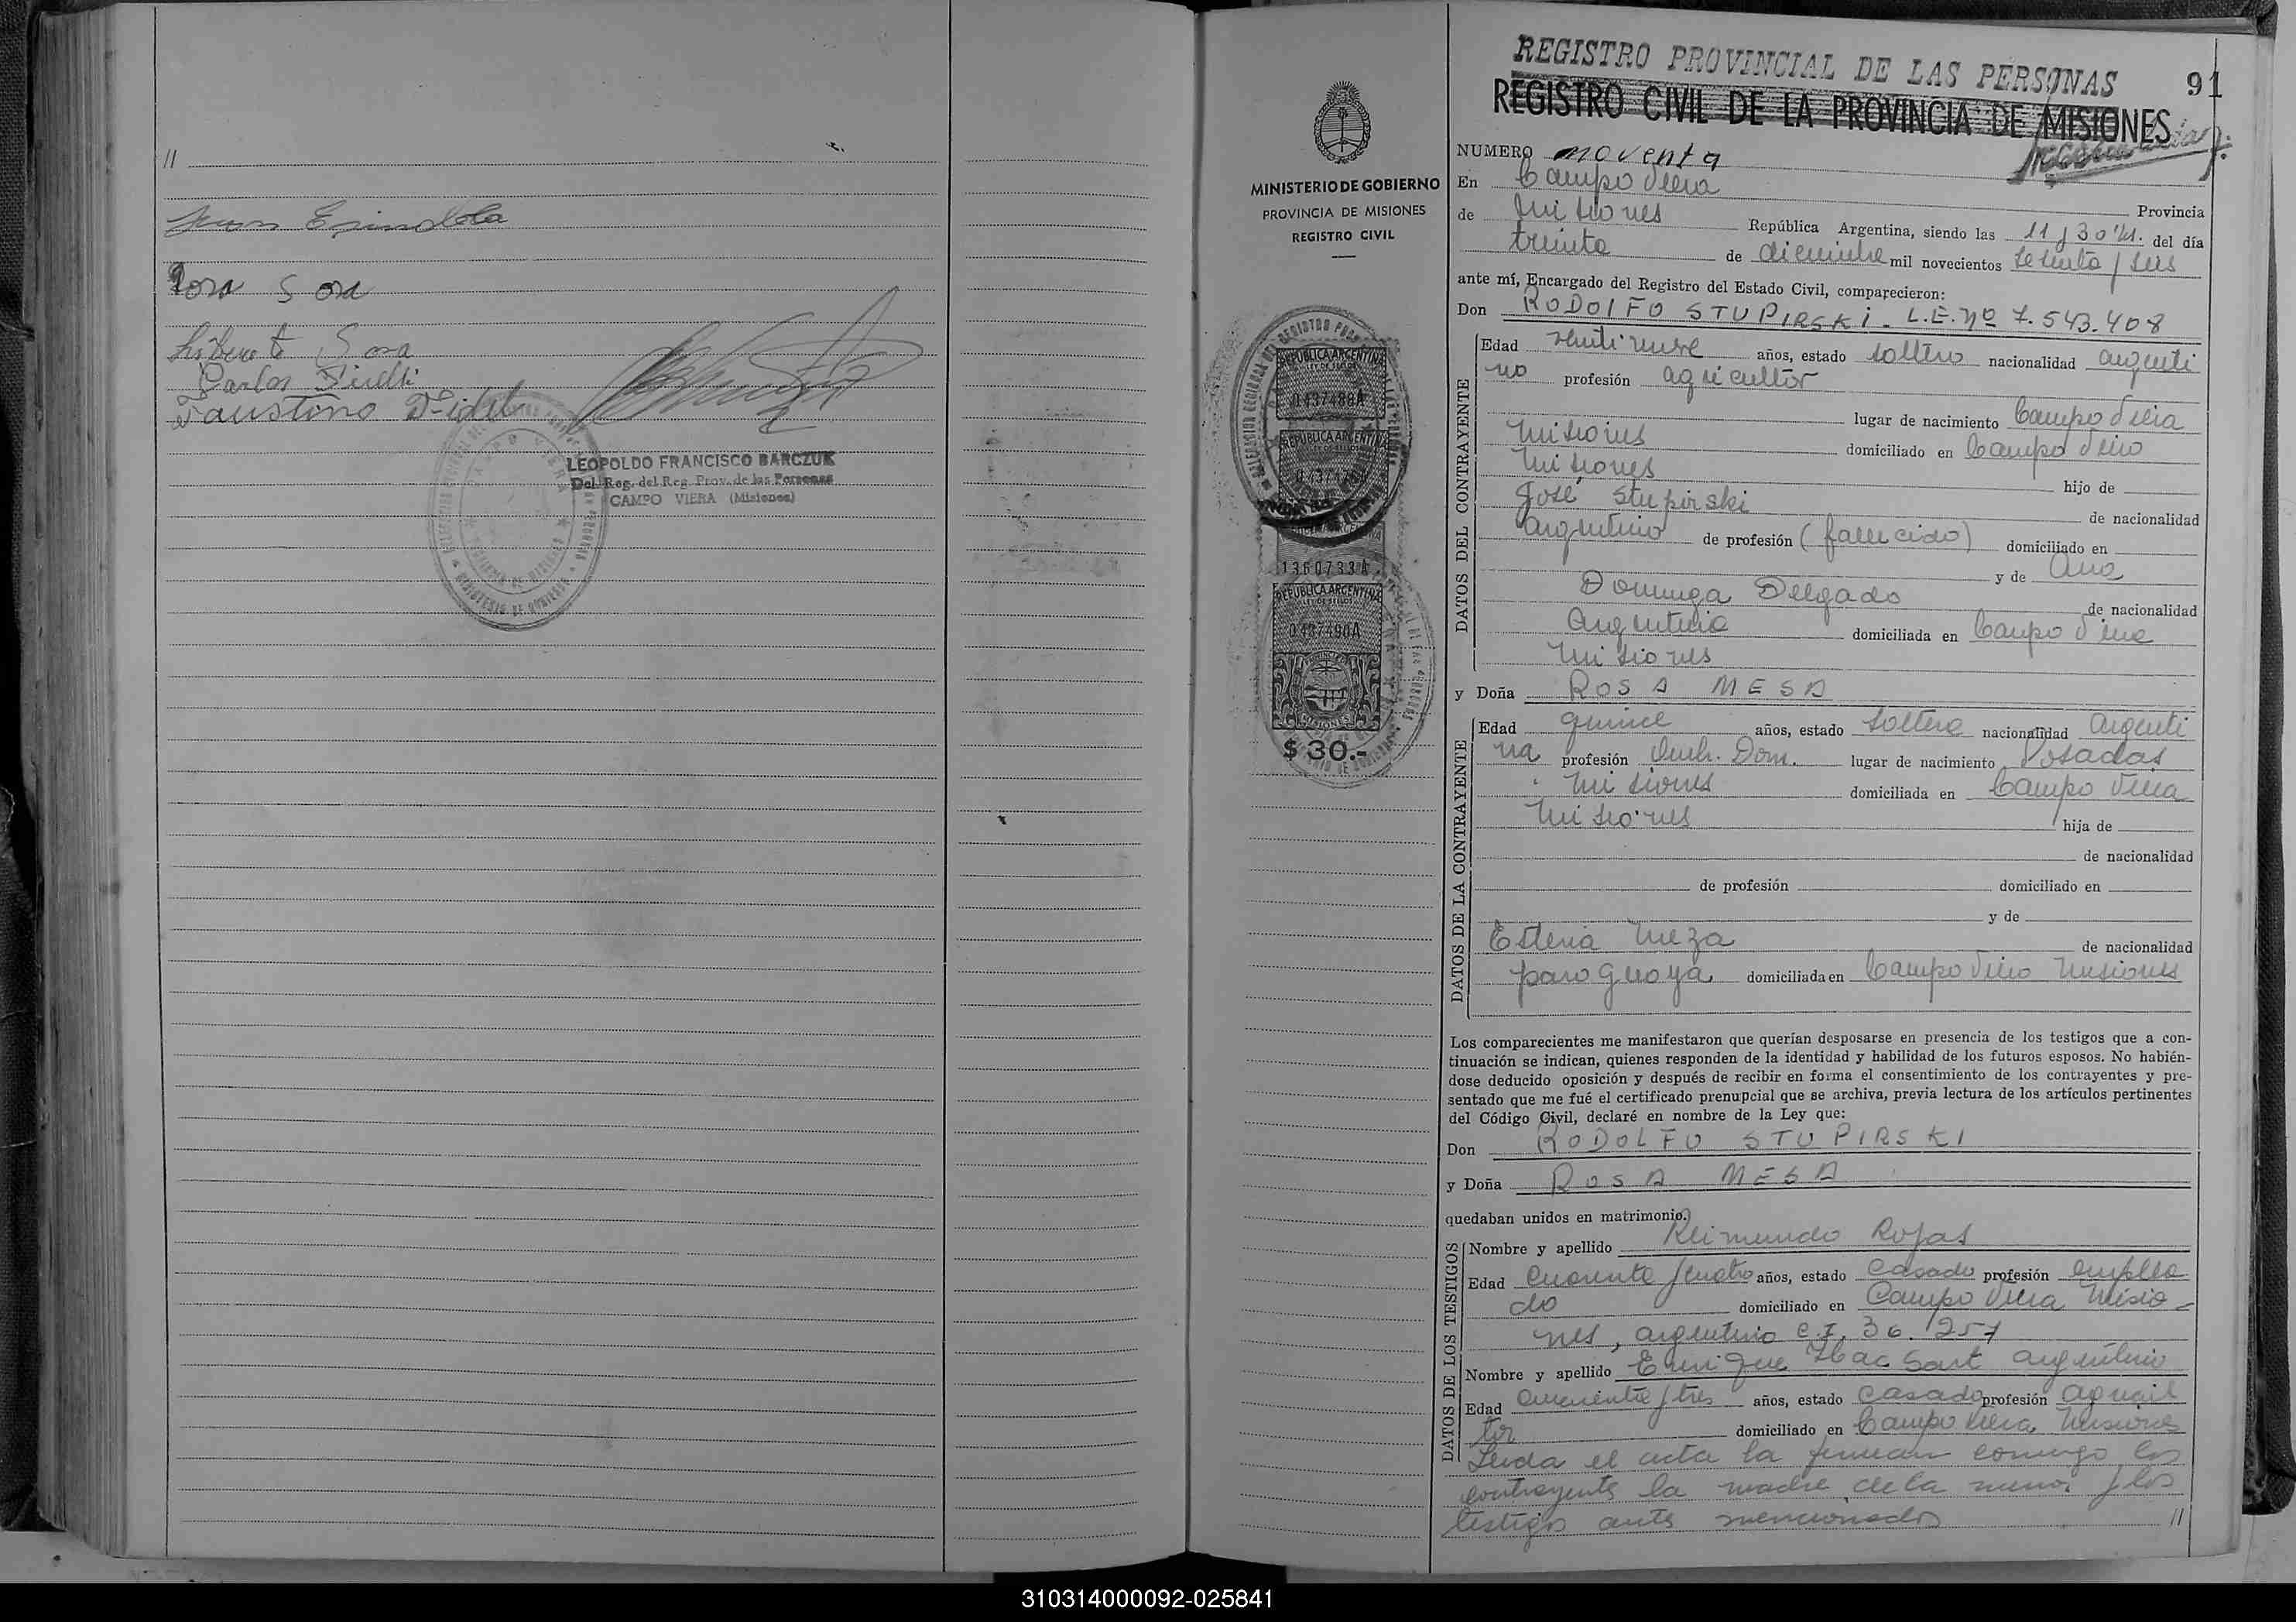 //
Juan Espindola
Rosa Sosa
Liberato Sosa
Carlos Pirelli
Faustino Fidel
LEOPOLDO FRANCISCO BARCZUK
Del. Reg. del Reg. Prov. de las Personas
CAMPO VIERA (Misiones)
MINISTERIO DE GOBIERNO
PROVINCIA DE MISIONES
REGISTRO CIVIL
REPUBLICA ARGENTINA
LEY DE SELLOS
0437488A
REPUBLICA ARGENTINA
1360733A
REPUBLICA ARGENTINA
LEY DE SELLOS
0437490A
MISIONES
$ 30.-
REGISTRO PROVINCIAL DE LAS PERSONAS
91
REGISTRO CIVIL DE LA PROVINCIA DE MISIONES
NUMERO noventa
En Campo Viera
Provincia
de Misiones República Argentina, siendo las 11 y 30 hs. del día
treinta de diciembre mil novecientos setenta y seis
ante mí, Encargado del Registro del Estado Civil, comparecieron:
Don RODOLFO STUPIRSKI. L.E. Nº 7.543.408
DATOS DEL CONTRAYENTE
Edad veintinueve años, estado soltero nacionalidad argenti
no profesión agricultor
lugar de nacimiento Campo Viera
Misiones domiciliado en Campo Viera
Misiones hijo de
José Stupirski de nacionalidad
argentino de profesión (fallecido) domiciliado en
y de Ana
Dominga Delgado de nacionalidad
Argentina domiciliada en Campo Viera
Misiones
y Doña ROSA MESA
DATOS DE LA CONTRAYENTE
Edad quince años, estado soltera nacionalidad Argenti
na profesión Queh. Dom. lugar de nacimiento Posadas
Misiones domiciliada en Campo Viera
Misiones hija de
de nacionalidad
de profesión domiciliado en
y de
Estena Meza de nacionalidad
paraguaya domiciliada en Campo Viera Misiones
Los comparecientes me manifestaron que querían desposarse en presencia de los testigos que a con-
tinuación se indican, quienes responden de la identidad y habilidad de los futuros esposos. No habién-
dose deducido oposición y después de recibir en forma el consentimiento de los contrayentes y pre-
sentado que me fué el certificado prenupcial que se archiva, previa lectura de los artículos pertinentes
del Código Civil, declaré en nombre de la Ley que:
Don RODOLFO STUPIRSKI
y Doña ROSA MESA
quedaban unidos en matrimonio.
DATOS DE LOS TESTIGOS
Nombre y apellido Reimundo Rojas
Edad Cuarenta y cuatro años, estado Casado profesión emplea
do domiciliado en Campo Viera Misio-
nes, argentino C.I. 36.1257
Nombre y apellido Enrique argentino
Edad Cincuenta y tres años, estado Casado profesión agricul
tor domiciliado en Campo Viera Misiones
Leida el acta la firman conmigo los
contrayentes la madre de la menor y los
testigos antes mencionados //
310314000092-025841